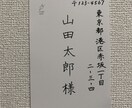 〒123-4567
東京都港区赤坂一丁目
二、三、四
山田太郎様